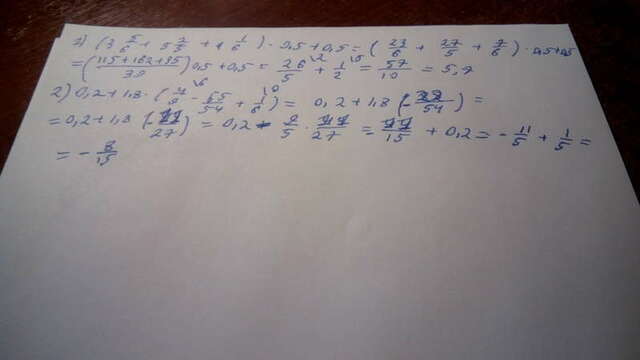 1) (3 5/6 + 5 2/5 + 1 1/6) · 0,5 + 0,5 = ( 23/6 + 27/5 + 7/6 ) · 0,5 + 0,5
= ( (115 + 162 + 35)/30 ) 0,5 + 0,5 = 26/5 + 1/2 = 57/10 = 5,7
2) 0,2 + 1,8 · ( - 65/54 + ) = 0,2 + 1,8 ( - 22/54 ) =
= 0,2 + 1,8 ( - 11/27 ) = 0,2 9/5 · 11/27 = 11/15 + 0,2 = - 11/5 + 1/5 =
= - 8/15